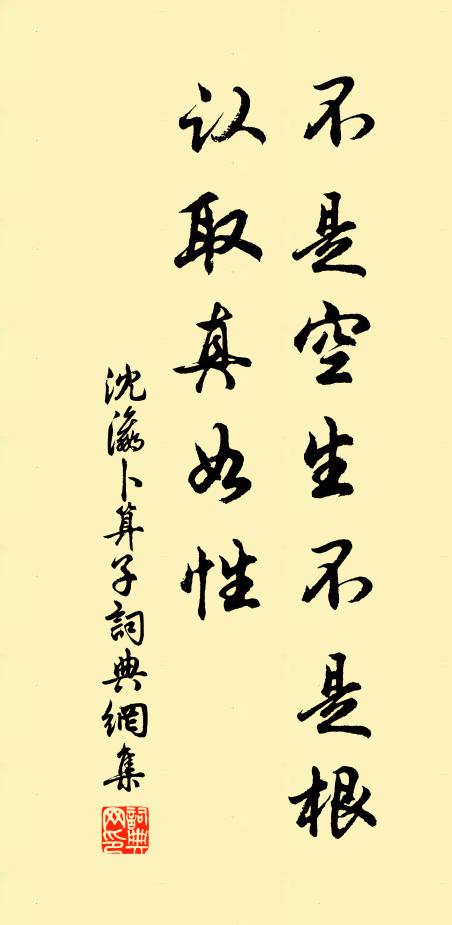 不是空生不是根
认取真如性
沈瀛卜算子詞典網集
詞典网印